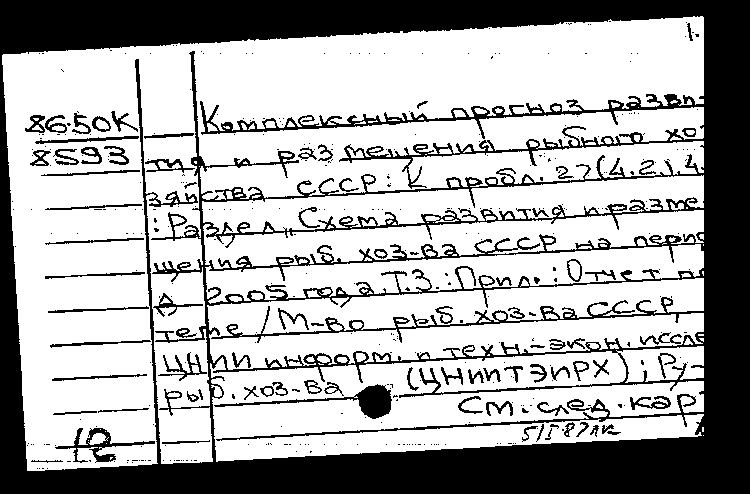 1.
86-50К Комплексный прогноз разви-
8593 тия и размещения рыбного хо-
зяйства СССР: К пробл. 27(4.2).4.
: Раздел „Схема развития и разме-
щения рыб. хоз-ва СССР на перио
д 2005 года. Т.3.: Прил.: Отчет по
теме / М-во рыб. хоз-ва СССР,
ЦНИИ информ. и техн.-экон. иссле
рыб. хоз-ва (ЦНИИТЭИРХ); Ру-
См. след. кар
12